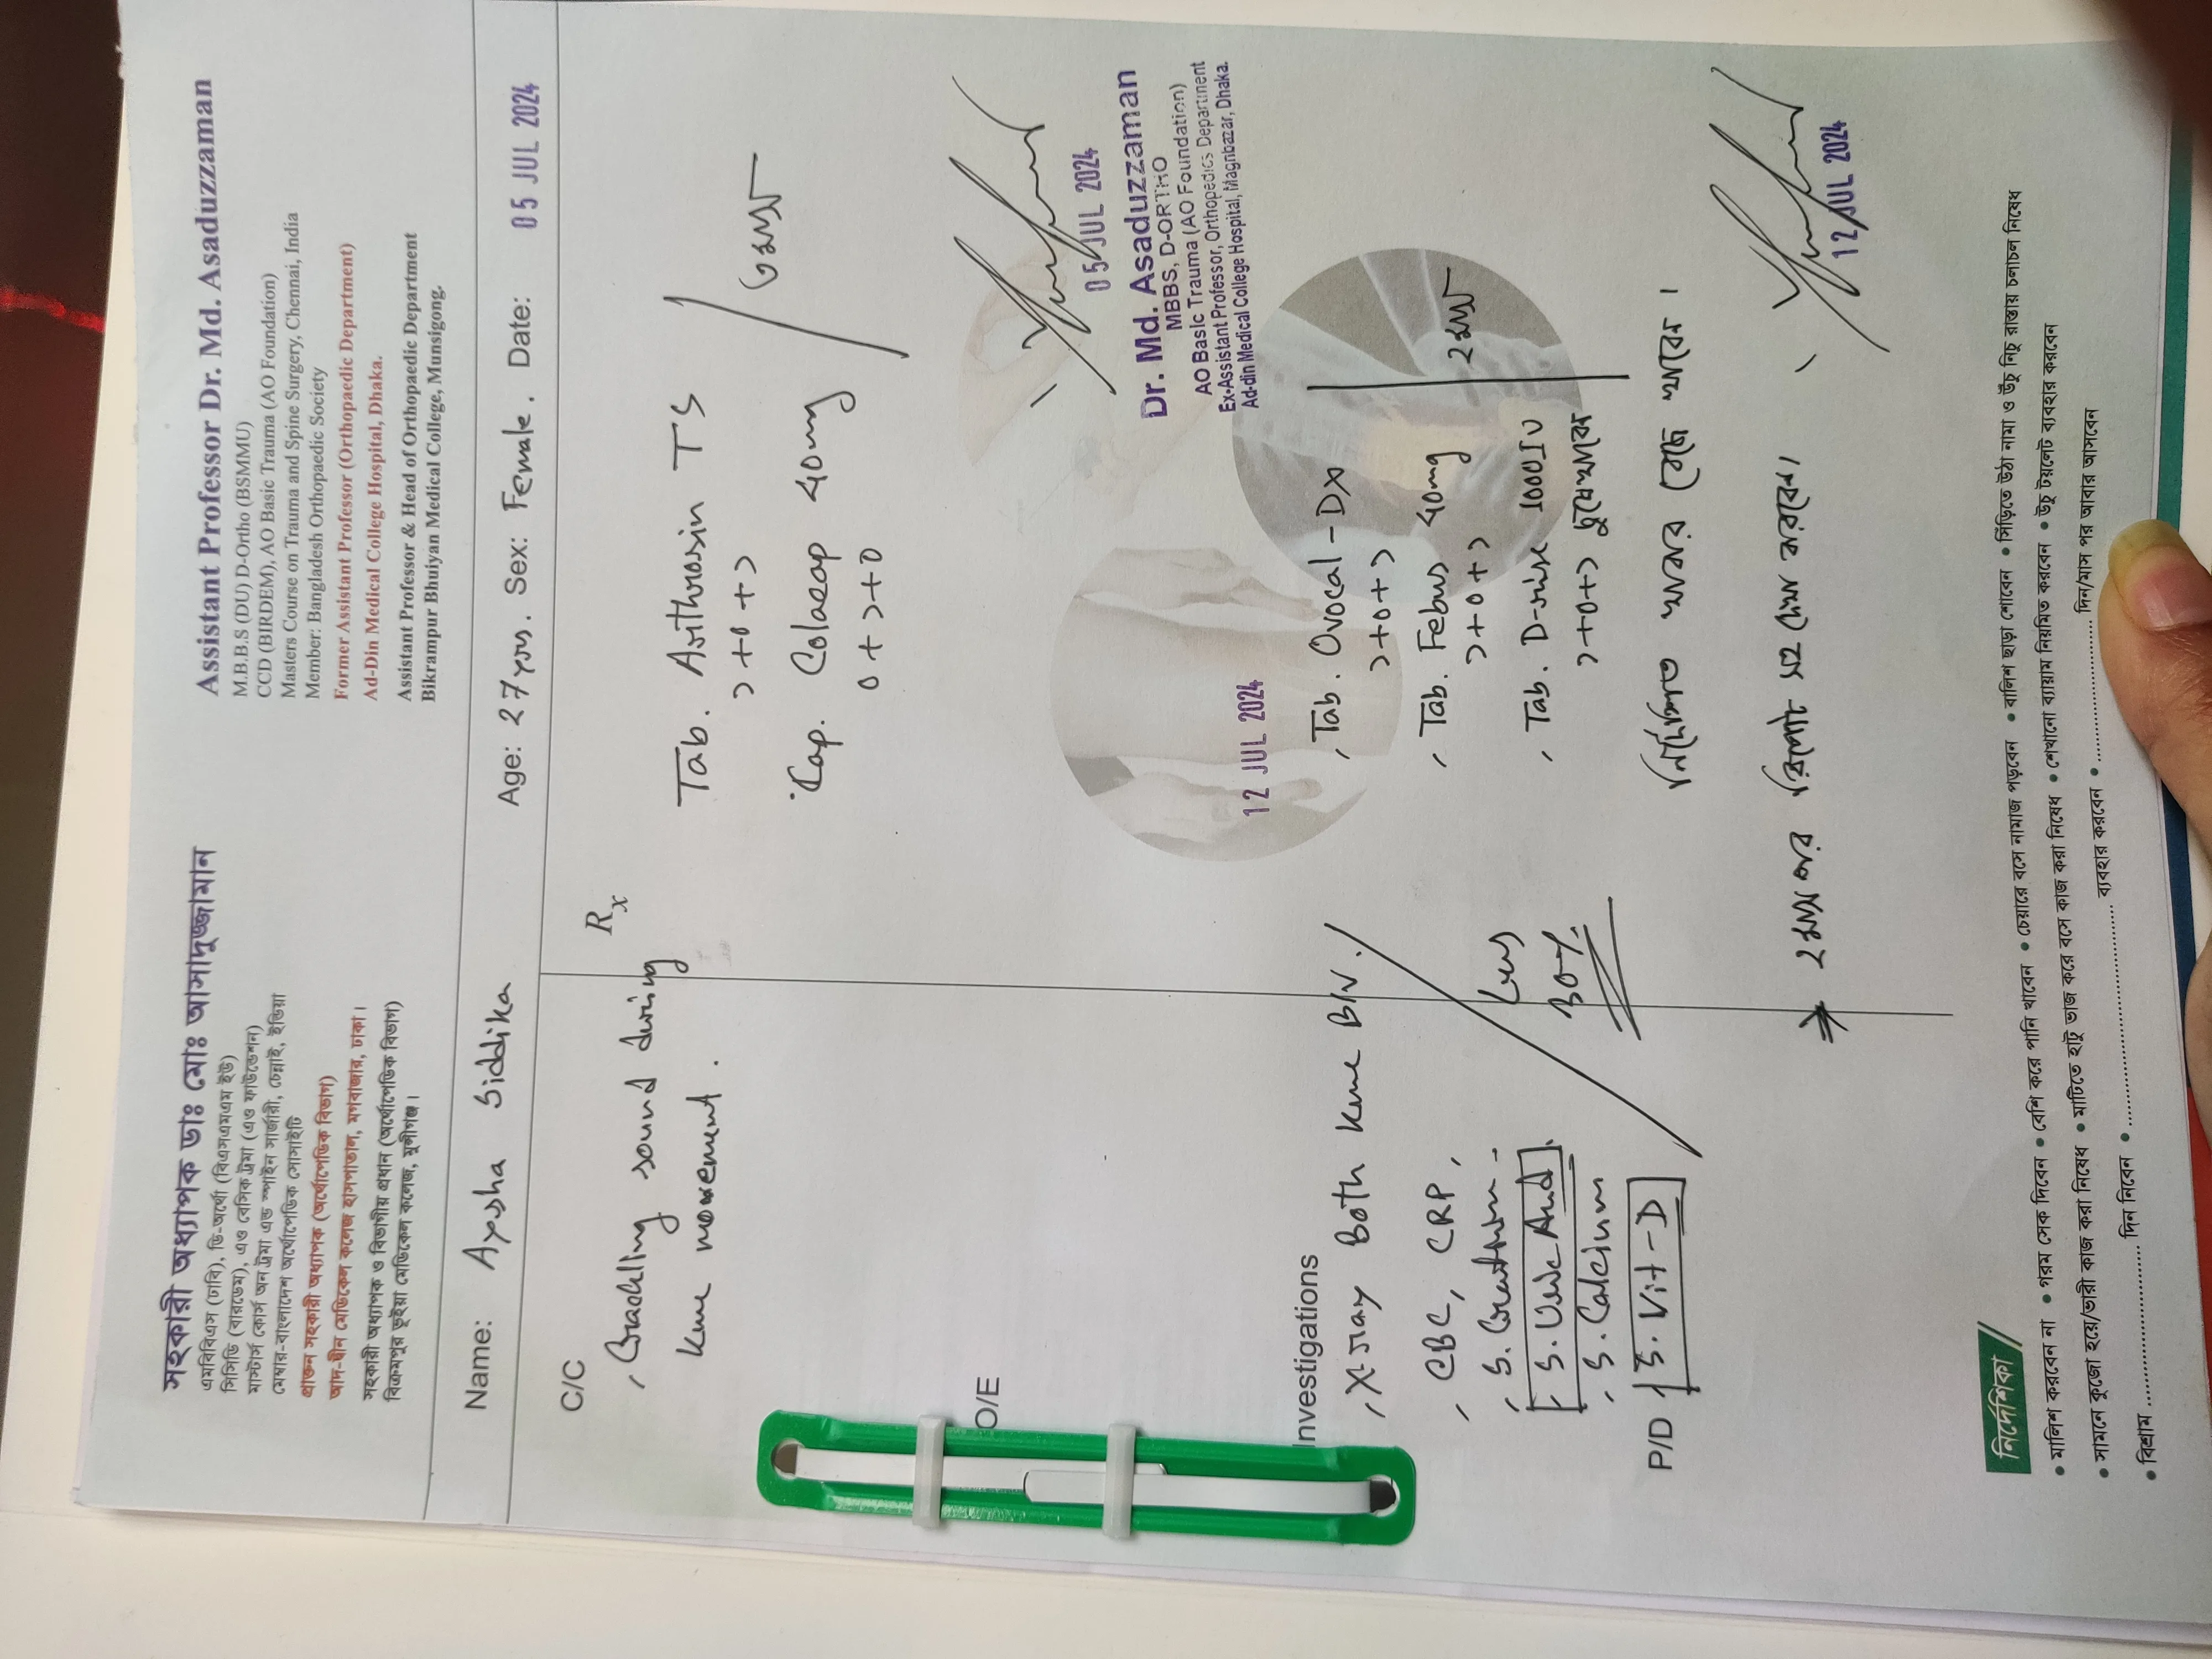 সহকারী অধ্যাপক ডাঃ মোঃ আসাদুজ্জামান
এমবিবিএস (ঢাবি), ডি-অর্থো (বিএসএমএম ইউ)
সিসিডি (বারডেম), এও বেসিক ট্রমা (এও ফাউন্ডেশন)
মাস্টার্স কোর্স অন ট্রমা এন্ড স্পাইন সার্জারী, চেন্নাই, ইন্ডিয়া
মেম্বার-বাংলাদেশ অর্থোপেডিক সোসাইটি
প্রাক্তন সহকারী অধ্যাপক (অর্থোপেডিক বিভাগ)
আদ-দ্বীন মেডিকেল কলেজ হাসপাতাল, মগবাজার, ঢাকা।
সহকারী অধ্যাপক ও বিভাগীয় প্রধান (অর্থোপেডিক বিভাগ)
বিক্রমপুর ভূইয়া মেডিকেল কলেজ, মুন্সীগঞ্জ।
Assistant Professor Dr. Md. Asaduzzaman
M.B.B.S (DU) D-Ortho (BSMMU)
CCD (BIRDEM), AO Basic Trauma (AO Foundation)
Masters Course on Trauma and Spine Surgery, Chennai, India
Member: Bangladesh Orthopaedic Society
Former Assistant Professor (Orthopaedic Department)
Ad-Din Medical College Hospital, Dhaka.
Assistant Professor & Head of Orthopaedic Department
Bikrampur Bhuiyan Medical College, Munsigong.
Name: Aysha Siddika Age: 27 yrs. Sex: Female. Date: 05 JUL 2024
C/C
Cracking sound during
knee movement.
O/E
Investigations
X-ray Both knee B/V.
CBC, CRP,
S. Creatinine
S. Uric Acid
S. Calcium
P/D S. Vit-D
Less
30%
Rx
Tab. Arithrosin TS
১+০+১
Cap. Colacap 40mg
০+১+০
05 JUL 2024
Dr. Md. Asaduzzaman
MBBS, D-ORTHO
AO Basic Trauma (AO Foundation)
Ex-Assistant Professor, Orthopedics Department
Ad-din Medical College Hospital, Magribazar, Dhaka.
12 JUL 2024
Tab. Ovocal-DX
১+০+১
Tab. Febus 40mg
১+০+১
২ মাস
Tab. D-rise 1000IU
১+০+১ চুষে খাবেন
নির্দেশিত খাবার বেছে খাবেন।
২ মাস পর রিপোর্ট সহ দেখা করবেন।
12 JUL 2024
নির্দেশিকা
• মালিশ করবেন না • গরম সেক দিবেন • বেশি করে পানি খাবেন • চেয়ারে বসে নামাজ পড়বেন • বালিশ ছাড়া শোবেন • সিঁড়িতে উঠা নামা ও উঁচু নিচু রাস্তায় চলাচল নিষেধ
• সামনে কুজো হয়ে/ভারী কাজ করা নিষেধ • মাটিতে হাটু ভাজ করে বসে কাজ করা নিষেধ • শেখানো ব্যায়াম নিয়মিত করবেন • উঁচু টয়লেট ব্যবহার করবেন
• বিশ্রাম .................... দিন নিবেন • .................... ব্যবহার করবেন • .................... দিন/মাস পর আবার আসবেন